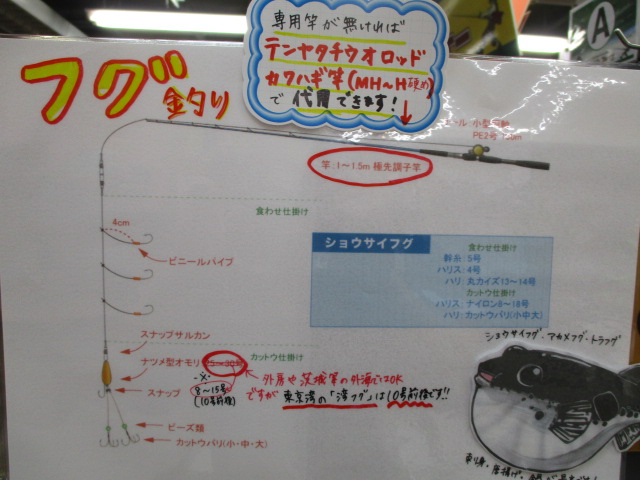 専用竿が無ければ
テンヤタチウオロッド
カワハギ竿(MH〜H硬め)
で代用できます!
A
フグ釣り
リール:小型両軸
PE2号
竿:1〜1.5m 極先調子竿
食わせ仕掛け
4cm
ビニールパイプ
ショウサイフグ
食わせ仕掛け
幹糸:5号
ハリス:4号
ハリ:丸カイズ13〜14号
カットウ仕掛け
ハリス:ナイロン8〜18号
ハリ:カットウバリ(小中大)
スナップサルカン
カットウ仕掛け
ナツメ型オモリ
外房や茨城等の外海ではOK
8〜15号
(10号前後)
ですが 東京湾の「湾フグ」は10号前後です!!
スナップ
ビーズ類
カットウバリ(小・中・大)
ショウサイフグ・アカメフグ・トラフグ
刺身・唐揚げ・